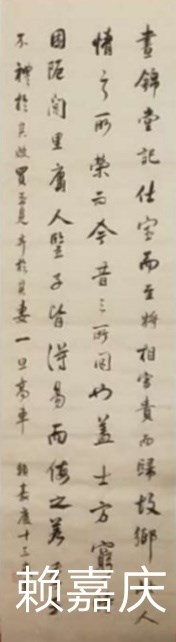 晝錦堂記仕宦而至將相富貴而歸故鄉此人
情之所榮而今昔之所同也蓋士方窮時
困阨閭里庸人豎子皆得易而侮之若季子
不禮於其嫂買臣見棄於其妻一旦高車 賴嘉慶十三
赖嘉庆